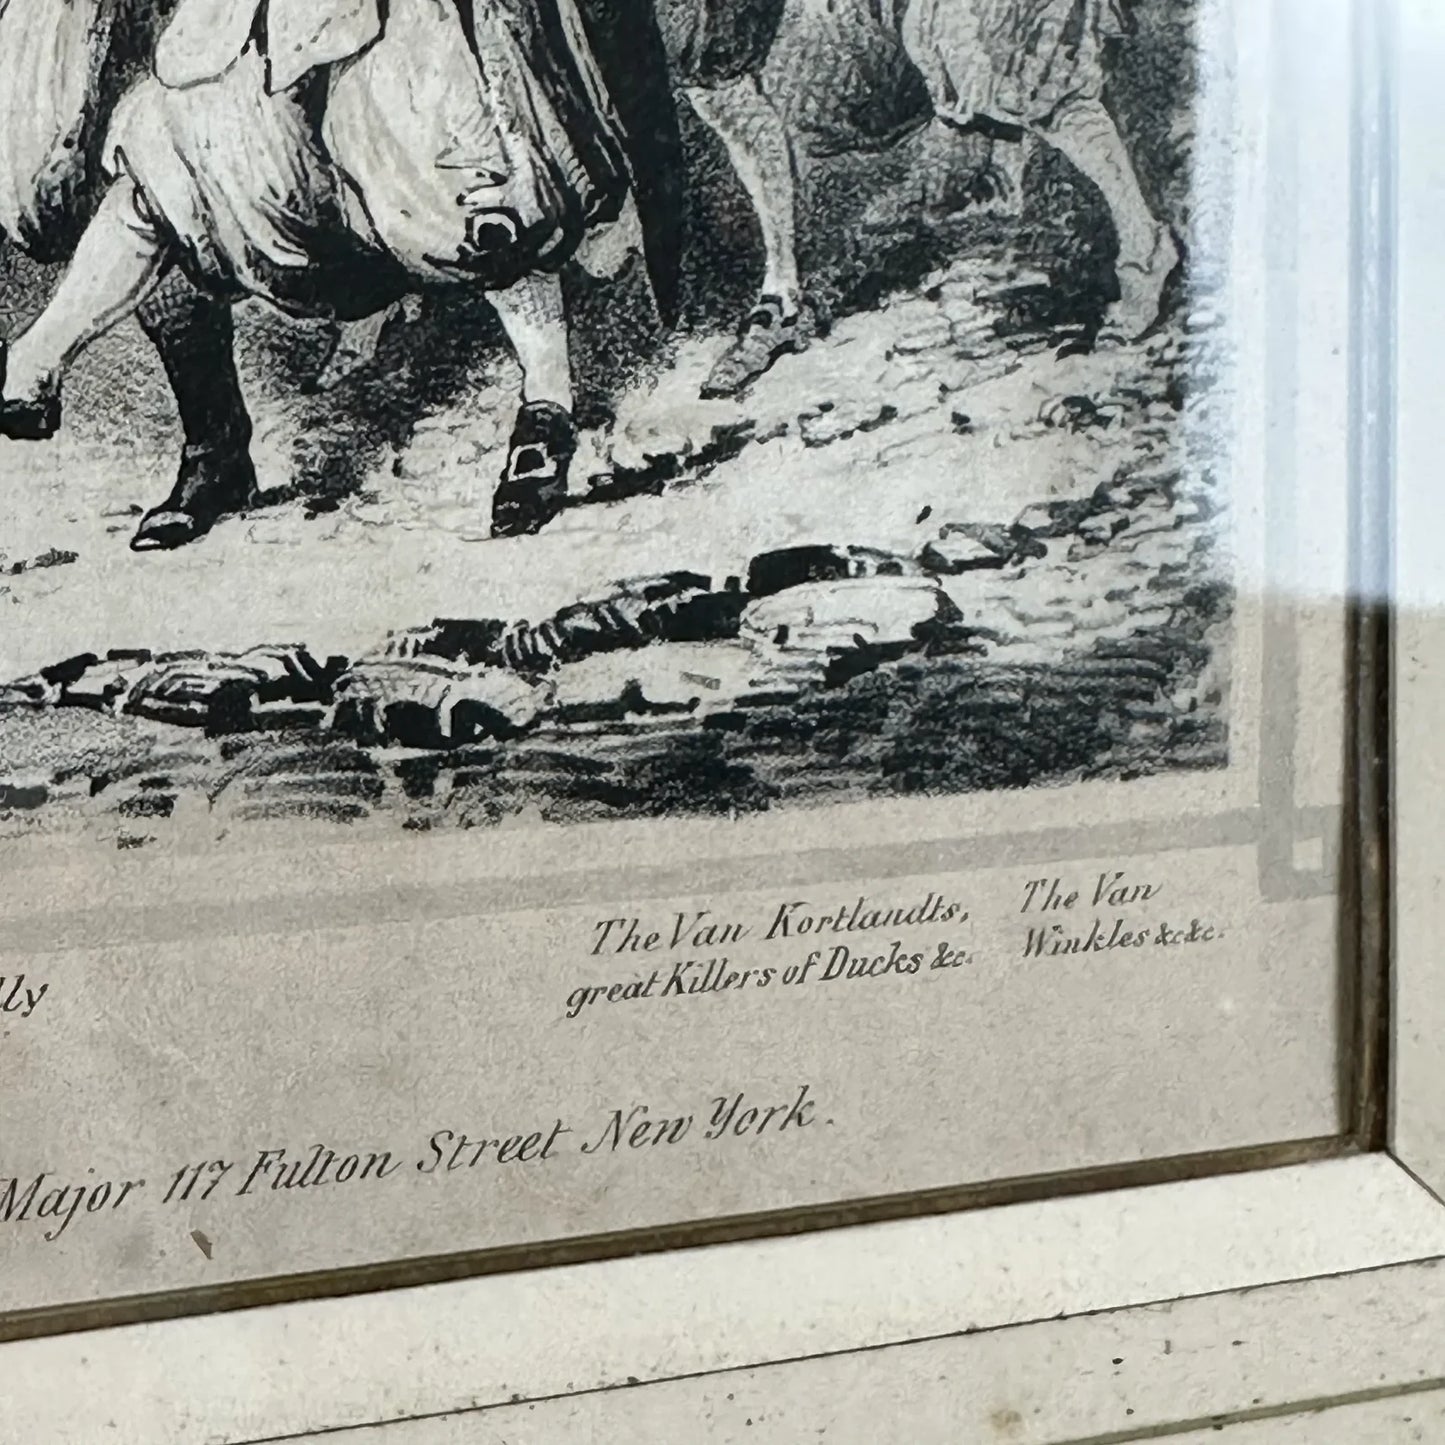 The Van Kortlandts,
great Killers of Ducks &c.
The Van
Winkles &c &c.
lly
Major 117 Fulton Street New York.